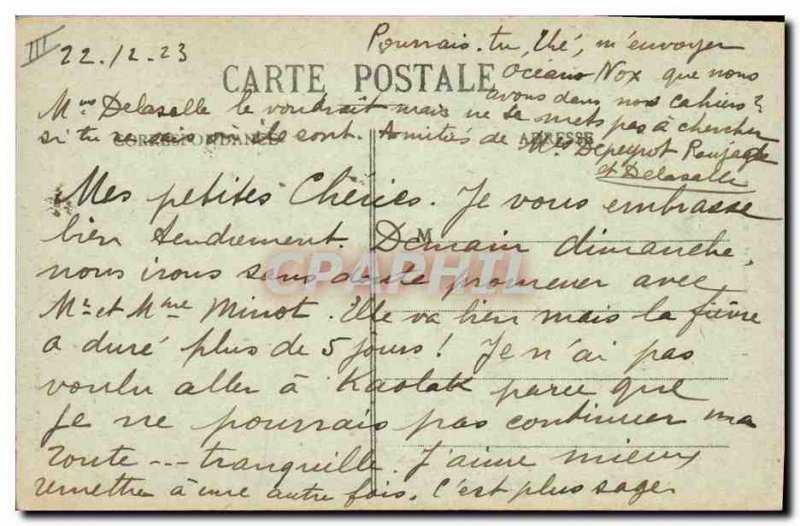 III
22.12.23
Pourrais-tu, Thé, m'envoyer
CARTE POSTALE
Océano Nox que nous
avons dans nos cahiers?
Mme Delaselle le voudrait mais ne te mets pas à chercher
si tu ne sais où ils sont. Amitiés de
CORRESPONDANCE
ADRESSE
Mes Depeyrot
et Delaselle
Mes petites Chéries. Je vous embrasse
bien tendrement. Demain dimanche,
M
nous irons sans doute promener avec
CPAPHIL
Mr et Mme Minot. Elle va bien mais la fièvre
a duré plus de 5 jours! Je n'ai pas
voulu aller à Kaolak parce que
je ne pourrais pas continuer ma
route --- tranquille. J'aime mieux
remettre à une autre fois. C'est plus sage